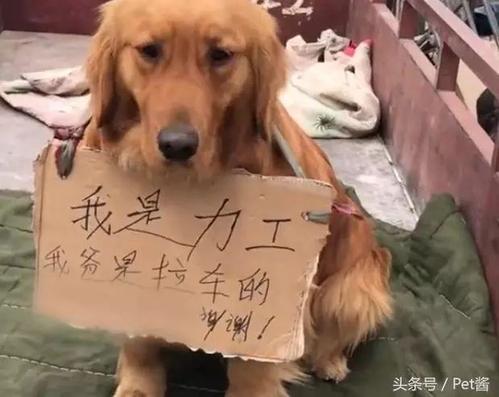 我是力工
我爸是拉车的
谢谢！
头条号 / Pet酱